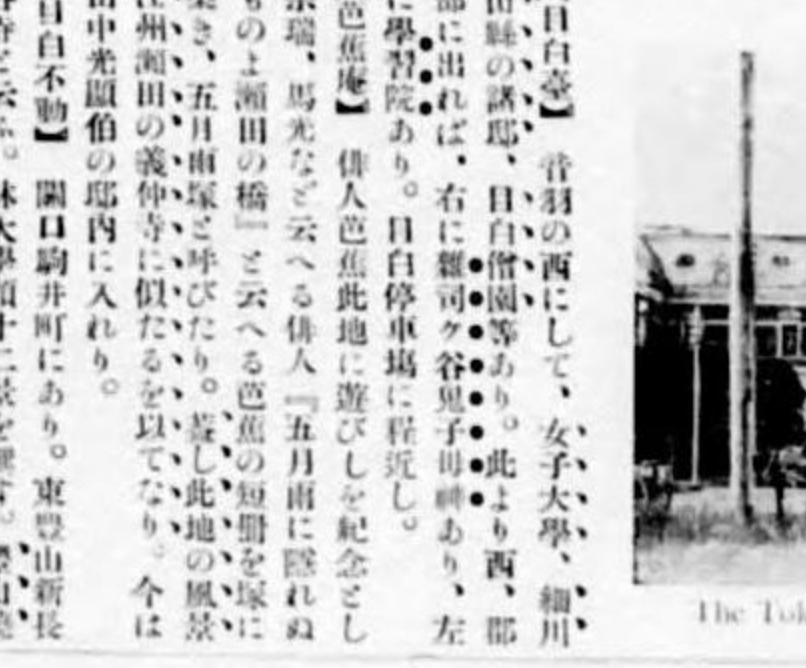 目白臺】 音羽の西にして、女子大學、細川
田縣の諸邸、目白僧園等あり。此より西、郡
部に出れば、右に雜司ケ谷鬼子母神あり、左
に學習院あり。目白停車塲に程近し。
芭蕉庵】 俳人芭蕉此地に遊びしを紀念とし
宗瑞、馬光など云へる俳人『五月雨に隱れぬ
ものよ瀬田の橋』と云へる芭蕉の短冊を塚に
築き、五月雨塚と呼びたり。蓋し此地の風景
江州瀬田の義仲寺に似たるを以てなり。今は
田中光顯伯の邸内に入れり。
目白不動】 關口駒井町にあり。東豊山新長
谷寺と云ふ。林大學頭十二景を選す。
The Tok